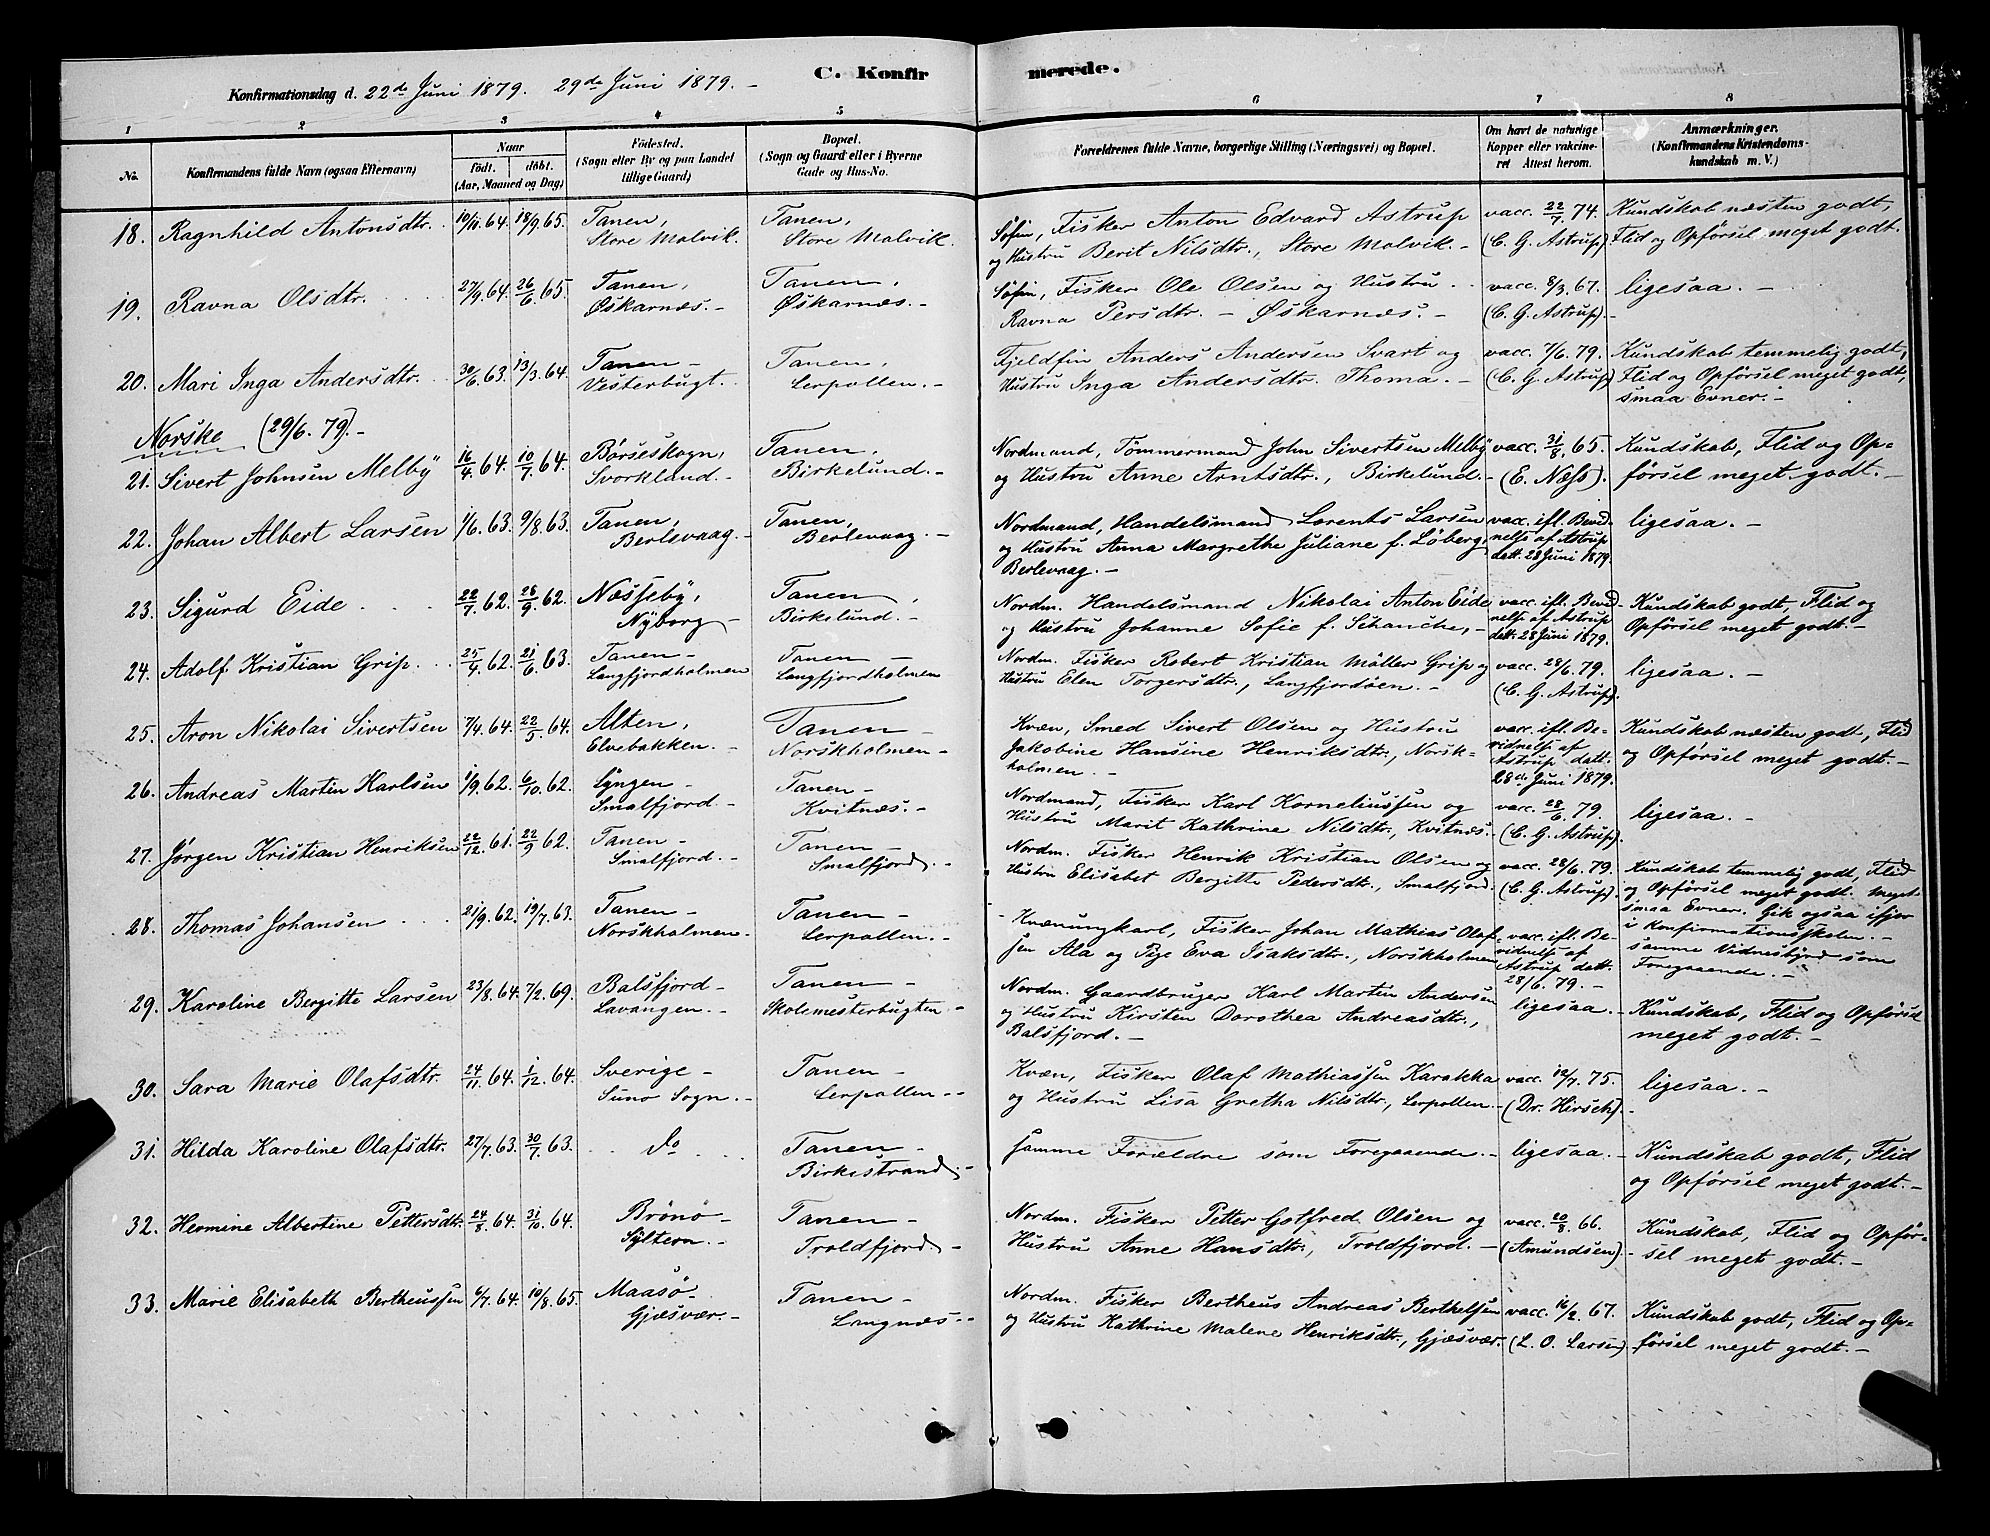 C. Konfirmerede.
Konfirmationsdag d. 22de Juni 1879. 29de Juni 1879. -
1 2 3 4 5 6 7 8
No. Konfirmandens fulde Navn (ogsaa Efternavn) Naar født. døbt. (Aar, Maaned og Dag) Fødested. (Sogn eller By og paa Landet tillige Gaard) Bopæl. (Sogn og Gaard eller i Byerne Gade og Hus-No. Forældrenes fulde Navne, borgerlige Stilling (Næringsvei) og Bopæl. Om havt de naturlige Kopper eller vakcineret Attest herom. Anmærkninger. (Konfirmandens Kristendomskundskab m. V.)
18. Ragnhild Antonsdtr. 10/11.64. 18/9.65. Tanen, Tanen, Søfin, Fisker Anton Edvard Astrup vacc. 22/7 74. Kundskab næsten godt,
Store Molvik. Store Molvik. og Hustru Berit Nilsdtr., Store Molvik. - (C. G. Astrup). Flid og Opførsel meget godt.
19. Ravna Olsdtr. 27/9.64. 26/6.65. Tanen, Tanen, Søfin, Fisker Ole Olsen og Hustru vacc. 8/3.67. ligesaa. -
Øskarnæs. - Øskarnæs. - Ravna Persdtr. - Øskarnæs. - (C. G. Astrup). -
20. Mari Inga Andersdtr. 30/6.63. 13/3.64. Tanen - Tanen, Fjeldfin Anders Andersen Svart og vacc. 7/6.79. Kundskab temmelig godt,
Vesterbugt. Lerpollen. - Hustru Inga Andersdtr. Thoma. - (C. G. Astrup) Flid og Opførsel meget godt,
smaa Evner. -
Norske (29/6. 79). -
21. Sivert Johnsen Melby 16/4.64. 10/7.64. Børseskogn, Tanen, Nordmand, Tømmermand John Sivertsen Melby vacc. 31/8.65. Kundskab, Flid og Op-
Svorkland. - Birkelund. - og Hustru Anne Arntsdtr., Birkelund. - (E. Næss). førsel meget godt. -
22. Johan Albert Larsen 1/6.63. 9/8.63. Tanen, Tanen, Nordmand, Handelsmand Lorents Larsen vacc. ifl. Bevid- ligesaa. -
Berlevaag. - Berlevaag. - og Hustru Anna Margrethe Juliane f. Løberg, nelse af Astrup
Berlevaag. - datt. 28 Juni 1879.
23. Sigurd Eide 22/7.62. 28/9.62. Næsseby, Tanen, Nordm. Handelsmand Nikolai Anton Eide vacc. ifl. Bevid- Kundskab godt, Flid og
Nyborg - Birkelund. - og Hustru Johanne Sofie f. Schanche, - nelse af Astrup Opførsel meget godt. -
datt. 28 Juni 1879.
24. Adolf Kristian Grip. 25/4.62. 21/6.63. Tanen - Tanen - Nordm. Fisker Robert Kristian Möller Grip og vacc. 28/6.79. ligesaa. -
Langfjordholmen Langfjordholmen Hustru Elen Torgersdtr., Langfjordøen. - (C. G. Astrup).
25. Aron Nikolai Sivertsen 7/4.64. 22/5.64. Alten, Tanen - Kvæn, Smed Sivert Olsen og Hustru vacc. ifl. Be- Kundskab næsten godt, Flid
Elvebakken. - Norskholmen - Jakobine Hansine Henriksdtr., Norsk- vidnelse af og Opførsel meget godt. -
holmen. - Astrup datt.
28de Juni 1879.
26. Andreas Martin Karlsen 1/9.62. 6/10.62. Lyngen - Tanen - Nordmand, Fisker Karl Korneliussen og vacc. 28/6.79. ligesaa. -
Smalfjord. - Kvitnæs. - Hustru Marit Kathrine Nilsdtr., Kvitnæs. - (C. G. Astrup).
27. Jørgen Kristian Henriksen 22/12.61. 22/9.62. Tanen - Tanen - Nordm. Fisker Henrik Kristian Olsen og vacc. 28/6.79. Kundskab temmelig godt, Flid
Smalfjord. - Smalfjord. - Hustru Elisabet Bergitte Pedersdtr., Smalfjord. (C. G. Astrup). og Opførsel meget godt. Meget
smaa Evner. Gik ogsaa ifjor
i Konfirmationsskolen. -
28. Thomas Johansen 21/9.62. 19/7.63. Tanen - Tanen - Kvænungkarl, Fisker Johan Mathias Olaf- vacc. ifl. Be- samme Vidnesbyrd som
Norskholmen. Lerpollen. - sen Ala og Pige Eva Isaksdtr., Norskholmen vidnelse af Foregaaende. -
Astrup datt.
28/6.79. -
29. Karoline Bergitte Larsen 23/8.64. 7/2.69. Balsfjord - Tanen - Nordm. Gaardbruger Karl Martin Andersen ligesaa. - Kundskab, Flid og Opførsel
Lavangen. - Skolemesterbugten. - og Hustru Kirsten Dorothea Andreasdtr., meget godt. -
Balsfjord. -
30. Sara Marie Olafsdtr. 24/11.64. 1/12.64. Sverige - Tanen - Kvæn, Fisker Olaf Mathiassen Karakka vacc. 12/7.75. ligesaa. -
Suno Sogn. - Lerpollen. - og Hustru Lisa Gretha Nilsdtr., Lerpollen. - (Dr. Hirsch). -
31. Hilda Karoline Olafsdtr. 27/7.63. 30/7.63. do Tanen - Samme Forældre som Foregaaende. - ligesaa. - Kundskab godt, Flid
Birkestrand. - og Opførsel meget godt. -
32. Hermine Albertine Pettersdtr. 24/8.64. 31/10.64. Brönö - Tanen - Nordm. Fisker Petter Gotfred Olsen og vacc. 20/8.66. Kundskab, Flid og Opfør-
Syltern. - Troldfjord. - Hustru Anne Hansdtr., Troldfjord. - (Amundsen). - sel meget godt. -
33. Marie Elisabeth Bertheussen 6/7.64. 10/8.65. Maasö - Tanen - Nordm. Fisker Bertheus Andreas Berthelsen vacc. 16/2.67. Kundskab godt, Flid og Op-
Gjæsvær. - Langnæs. - og Hustru Kathrine Malene Henriksdtr., Gjæsvær. (L. O. Larsen) førsel meget godt. -